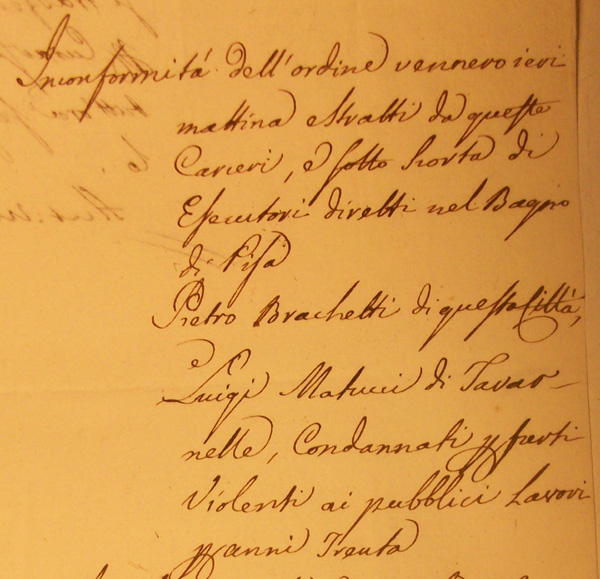 Inconformitá dell'ordine vennero ieri
mattina estratti da queste
Carceri, e sotto scorta di
Esecutori diretti nel Bagno
di Pisa
Pietro Brachetti di questa Città,
e
Luigi Matucci di Tavar-
nelle, Condannati p furti
Violenti ai pubblici Lavori
p anni Trenta